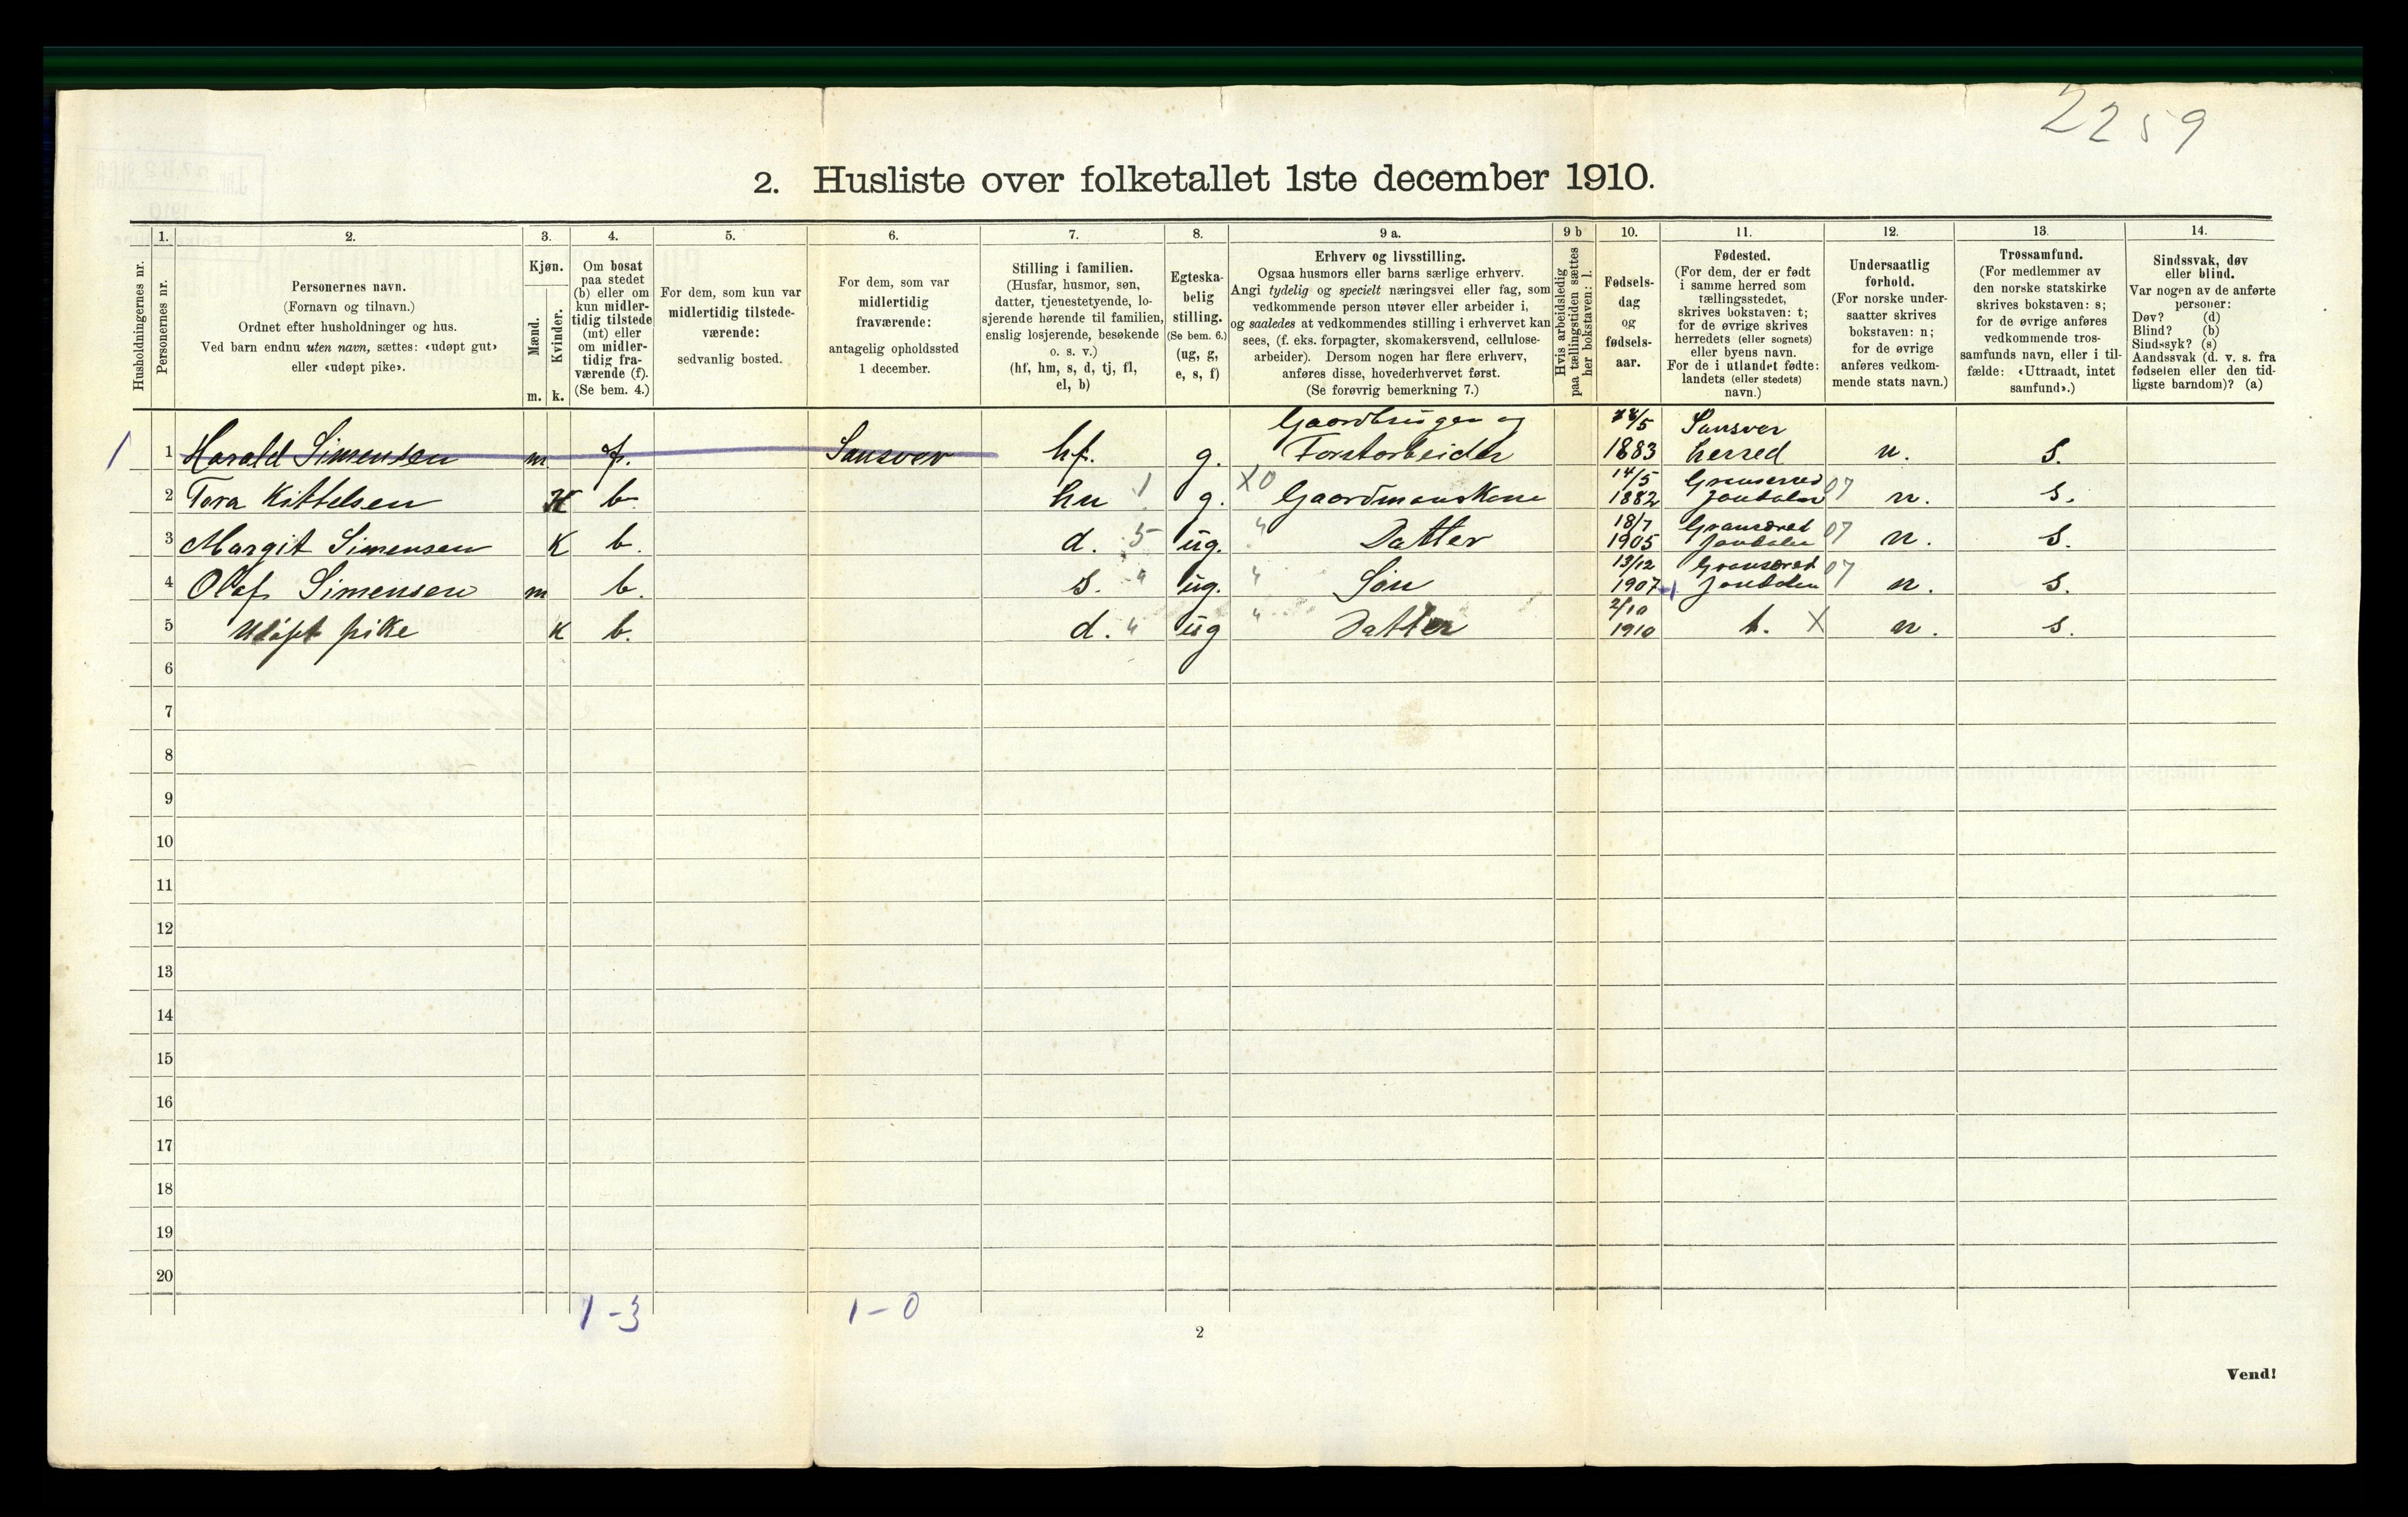 2259
2. Husliste over folketallet 1ste december 1910.
Husholdningernes nr.
1.
Personernes nr.
2.
Personernes navn.
(Fornavn og tilnavn.)
Ordnet efter husholdninger og hus.
Ved barn endnu uten navn, sættes: «udøpt gut»
eller «udøpt pike».
3.
Kjøn.
Mænd.
Kvinder.
m. k.
4.
Om bosat
paa stedet
(b) eller om
kun midler-
tidig tilstede
(mt) eller
om midler-
tidig fra-
værende (f).
(Se bem. 4.)
5.
For dem, som kun var
midlertidig tilstede-
værende:
sedvanlig bosted.
6.
For dem, som var
midlertidig
fraværende:
antagelig opholdssted
1 december.
7.
Stilling i familien.
(Husfar, husmor, søn,
datter, tjenestetyende, lo-
sjerende hørende til familien,
enslig losjerende, besøkende
o. s. v.)
(hf, hm, s, d, tj, fl,
el, b)
8.
Egteska-
belig
stilling.
(Se bem. 6.)
(ug, g,
e, s, f)
9 a.
Erhverv og livsstilling.
Ogsaa husmors eller barns særlige erhverv.
Angi tydelig og specielt næringsvei eller fag, som
vedkommende person utøver eller arbeider i,
og saaledes at vedkommendes stilling i erhvervet kan
sees, (f. eks. forpagter, skomakersvend, cellulose-
arbeider). Dersom nogen har flere erhverv,
anføres disse, hovederhvervet først.
(Se forøvrig bemerkning 7.)
9 b
Hvis arbeidsledig
paa tællingstiden sættes
her bokstaven: l.
10.
Fødsels-
dag
og
fødsels-
aar.
11.
Fødested.
(For dem, der er født
i samme herred som
tællingsstedet,
skrives bokstaven: t;
for de øvrige skrives
herredets (eller sognets)
eller byens navn.
For de i utlandet fødte:
landets (eller stedets)
navn.)
12.
Undersaatlig
forhold.
(For norske under-
saatter skrives
bokstaven: n;
for de øvrige
anføres vedkom-
mende stats navn.)
13.
Trossamfund.
(For medlemmer av
den norske statskirke
skrives bokstaven: s;
for de øvrige anføres
vedkommende tros-
samfunds navn, eller i til-
fælde: «Uttraadt, intet
samfund».)
14.
Sindssvak, døv
eller blind.
Var nogen av de anførte
personer:
Døv? (d)
Blind? (b)
Sindssyk? (s)
Aandssvak (d. v. s. fra
fødselen eller den tid-
ligste barndom)? (a)
1 1 Harald Simensen m f. Sansver hf. g. Gaardbruger og Forstarbeider /5 1883 Sansver herred n. s.
2 Tora Kittelsen K b hu 1 g. X0 Gaardmanskone 14/5 1882 Gransherred Jondalen 07 n. s.
3 Margit Simensen K b. d. 5 ug. " Datter 18/7 1905 Gransered Jondalen 07 n. s.
4 Olaf Simensen m b. s. " ug. " Søn 13/12 1907 -1 Gransered Jondalen 07 n. s.
5 Udøpt pike K b. d. " ug " Datter 2/10 1910 t. X n. s.
6
7
8
9
10
11
12
13
14
15
16
17
18
19
20
1-3 1-0
2
Vend!